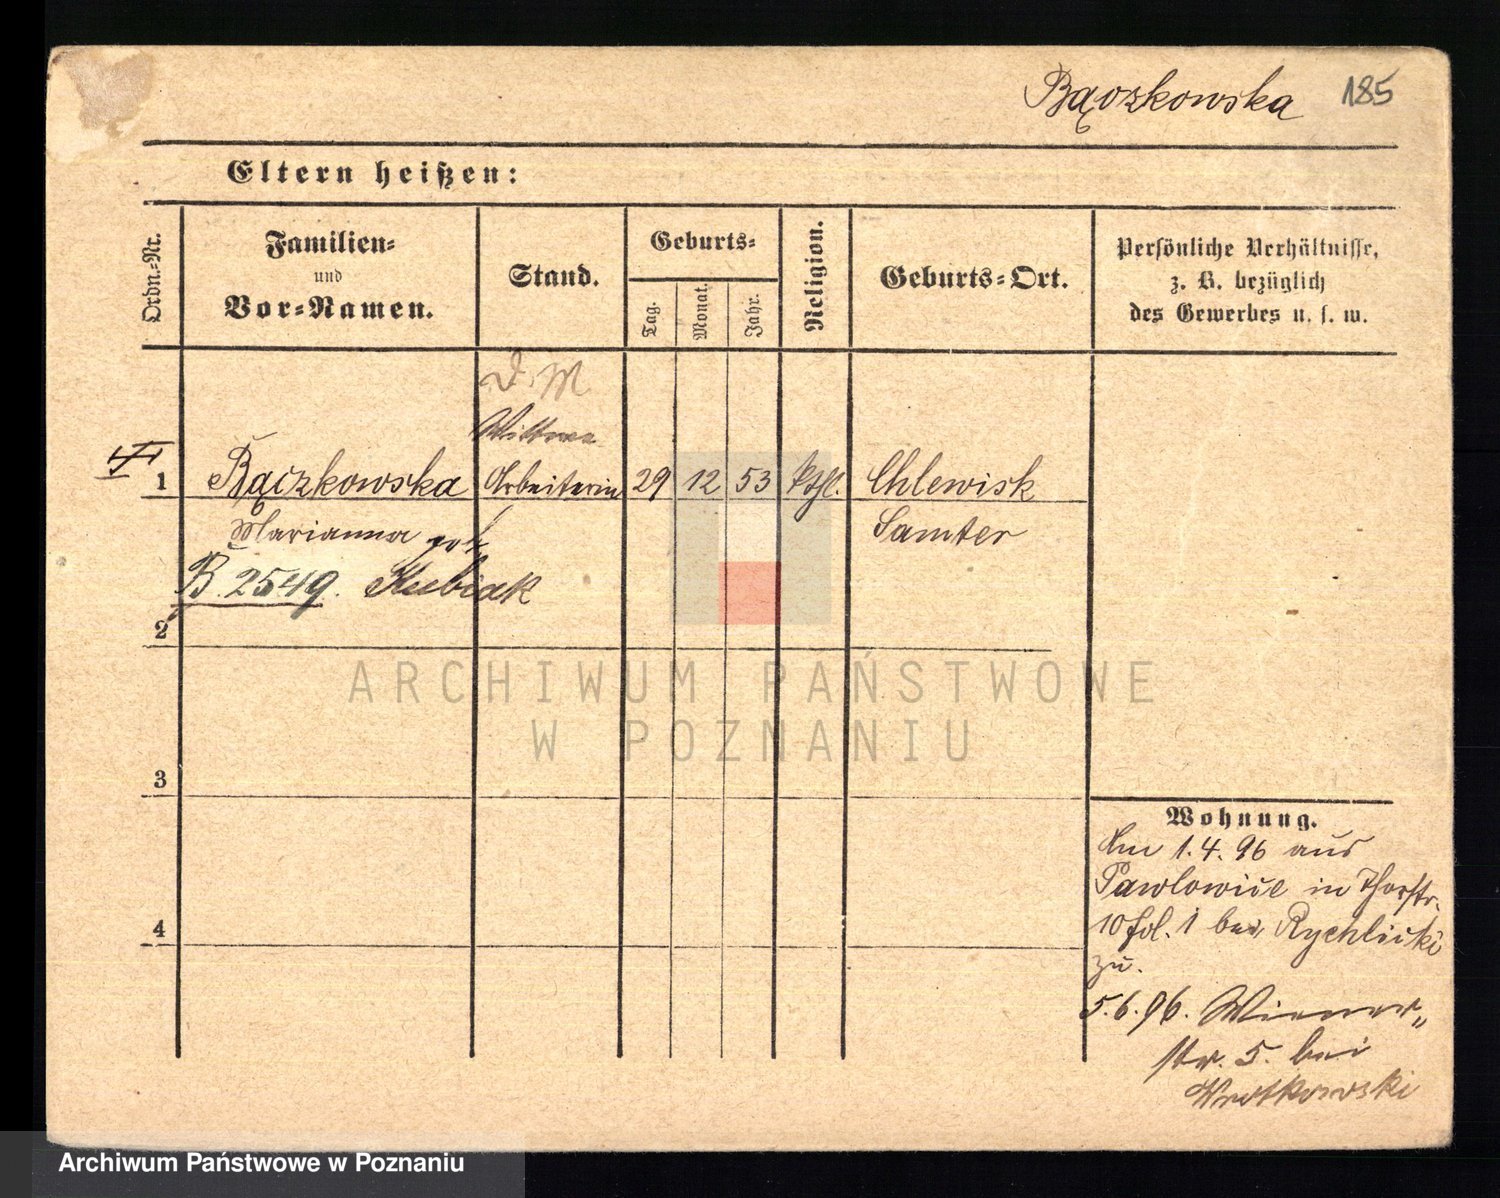 Bączkowska 185
Eltern heißen:
Ordn.-Nr.
Familien-
und
Vor-Namen.
Stand.
Geburts-
Tag.
Monat.
Jahr.
Religion.
Geburts-Ort.
Persönliche Verhältnisse,
z. B. bezüglich
des Gewerbes u. s. w.
D. M
Wittwe
1 Bączkowska Arbeiterin 29 12 53 kthl. Chlewisk
Marianna geb. Samter
B. 2549. Kubiak
2
3
4
Wohnung.
Am 1.4.96 aus
Pawlowice in Thorstr.
10 fol. 1 bei Rychlicki
zu.
5.6.96. Wiener-
str. 5. bei
Wrotkowski
ARCHIWUM PAŃSTWOWE
W POZNANIU
Archiwum Państwowe w Poznaniu